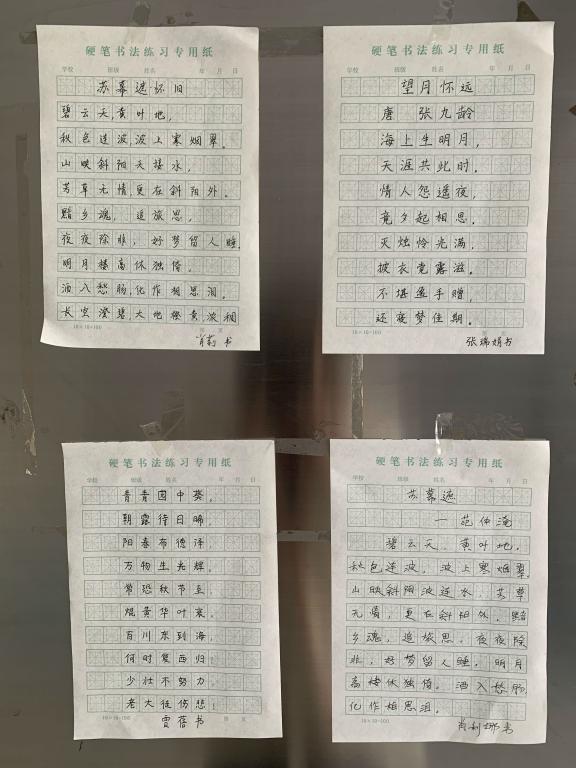 硬笔书法练习专用纸
学校 班级 姓名 年 月 日
苏幕遮怀旧
碧云天,黄叶地,
秋色连波波上寒烟翠。
山映斜阳天接水,
芳草无情,更在斜阳外。
黯乡魂,追旅思,
夜夜除非,好梦留人睡。
明月楼高休独倚,
酒入愁肠,化作相思泪。
长空澄碧大地
18×10=180 第 页
肖莉 书
硬笔书法练习专用纸
学校 班级 姓名 年 月 日
望月怀远
唐 张九龄
海上生明月,
天涯共此时。
情人怨遥夜,
竟夕起相思。
灭烛怜光满,
披衣觉露滋。
不堪盈手赠,
还寝梦佳期。
第 页
张瑞娟书
硬笔书法练习专用纸
学校 班级 姓名 年 月 日
青青园中葵,
朝露待日晞,
阳春布德泽,
万物生光辉。
常恐秋节至,
焜黄华叶衰。
百川东到海,
何时复西归!
少壮不努力,
老大徒伤悲!
第 页
曹蓓书
硬笔书法练习专用纸
学校 班级 姓名 年 月 日
苏幕遮
一范仲淹
碧云天、黄叶地。
秋色连波,波上寒烟翠。
山映斜阳波连水,芳草
无情,更在斜阳外。黯
乡魂,追旅思。夜夜除
非,好梦留人睡。明月
高楼休独倚。酒入愁肠,
化作相思泪。
肖利娜书